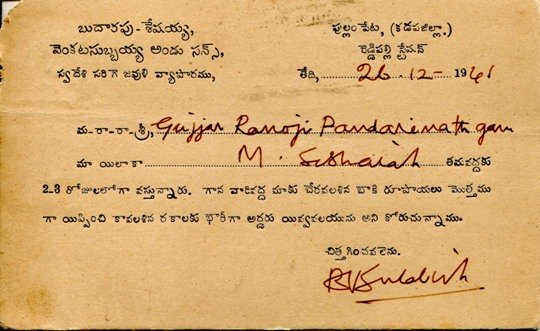 బుదారపు-శేషయ్య,
వెంకటసుబ్బయ్య అండు సన్స్,
స్వదేశి సరిగె జవుళి వ్యాపారము,
పుల్లంపేట, (కడపజిల్లా.)
రెడ్డిపల్లి స్టేషన్
తేది, 26-12-1941
మ-రా-రా-శ్రీ, Gujjar Ranoji Pandarinath garu
మా యిలాకా M. Subbaiah తమవద్దకు
2-3 రోజులలోగా వస్తున్నారు. గాన వారివద్ద మాకు చేరవలశిన బాకి రూపాయలు మొత్తము
గా యిప్పించి కావలశిన రకాలకు భారీగా అర్డరు యివ్వవలయును అని కోరుచున్నాము.
చిత్తగించవలెను.